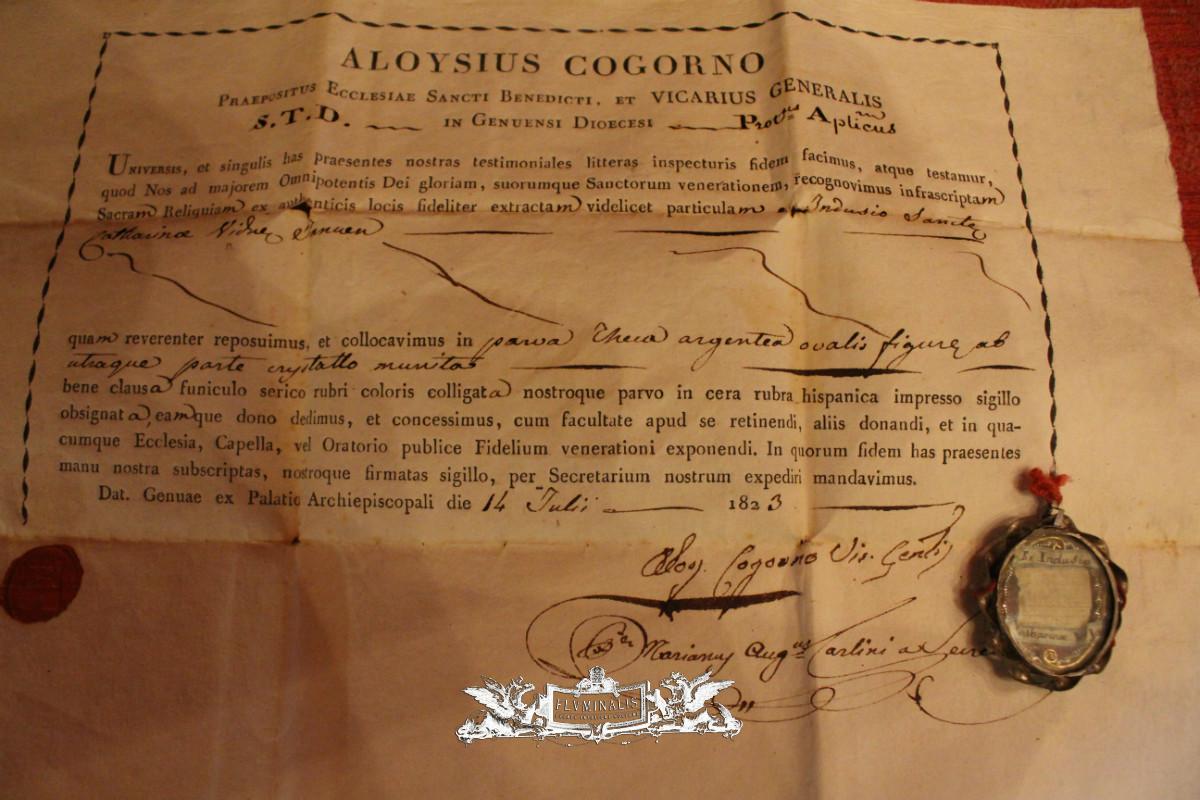 ALOYSIUS COGORNO
PRAEPOSITUS ECCLESIAE SANCTI BENEDICTI, ET VICARIUS GENERALIS
S.T.D. IN GENUENSI DIOECESI Prot.us Ap.licus
UNIVERSIS, et singulis has praesentes nostras testimoniales litteras inspecturis fidem facimus, atque testamur,
quod Nos ad majorem Omnipotentis Dei gloriam, suorumque Sanctorum venerationem, recognovimus infrascriptam
Sacram Reliquiam ex authenticis locis fideliter extractam videlicet particulam ex Indusio Sanctę
Catharinæ Viduę Januen
quam reverenter reposuimus, et collocavimus in parva Theca argentea ovalis figurę ab
utraque parte crystallo munitas
bene clausa funiculo serico rubri coloris colligata nostroque parvo in cera rubra hispanica impresso sigillo
obsignata, eamque dono dedimus, et concessimus, cum facultate apud se retinendi, aliis donandi, et in qua-
cumque Ecclesia, Capella, vel Oratorio publice Fidelium venerationi exponendi. In quorum fidem has praesentes
manu nostra subscriptas, nostroque firmatas sigillo, per Secretarium nostrum expediri mandavimus.
Dat. Genuae ex Palatio Archiepiscopali die 14 Iulii 1823
Aloy. Cogorno Vic. Genlis
Marianus Aug.us Carlini a
Ex Indusio
FLVMINALIS